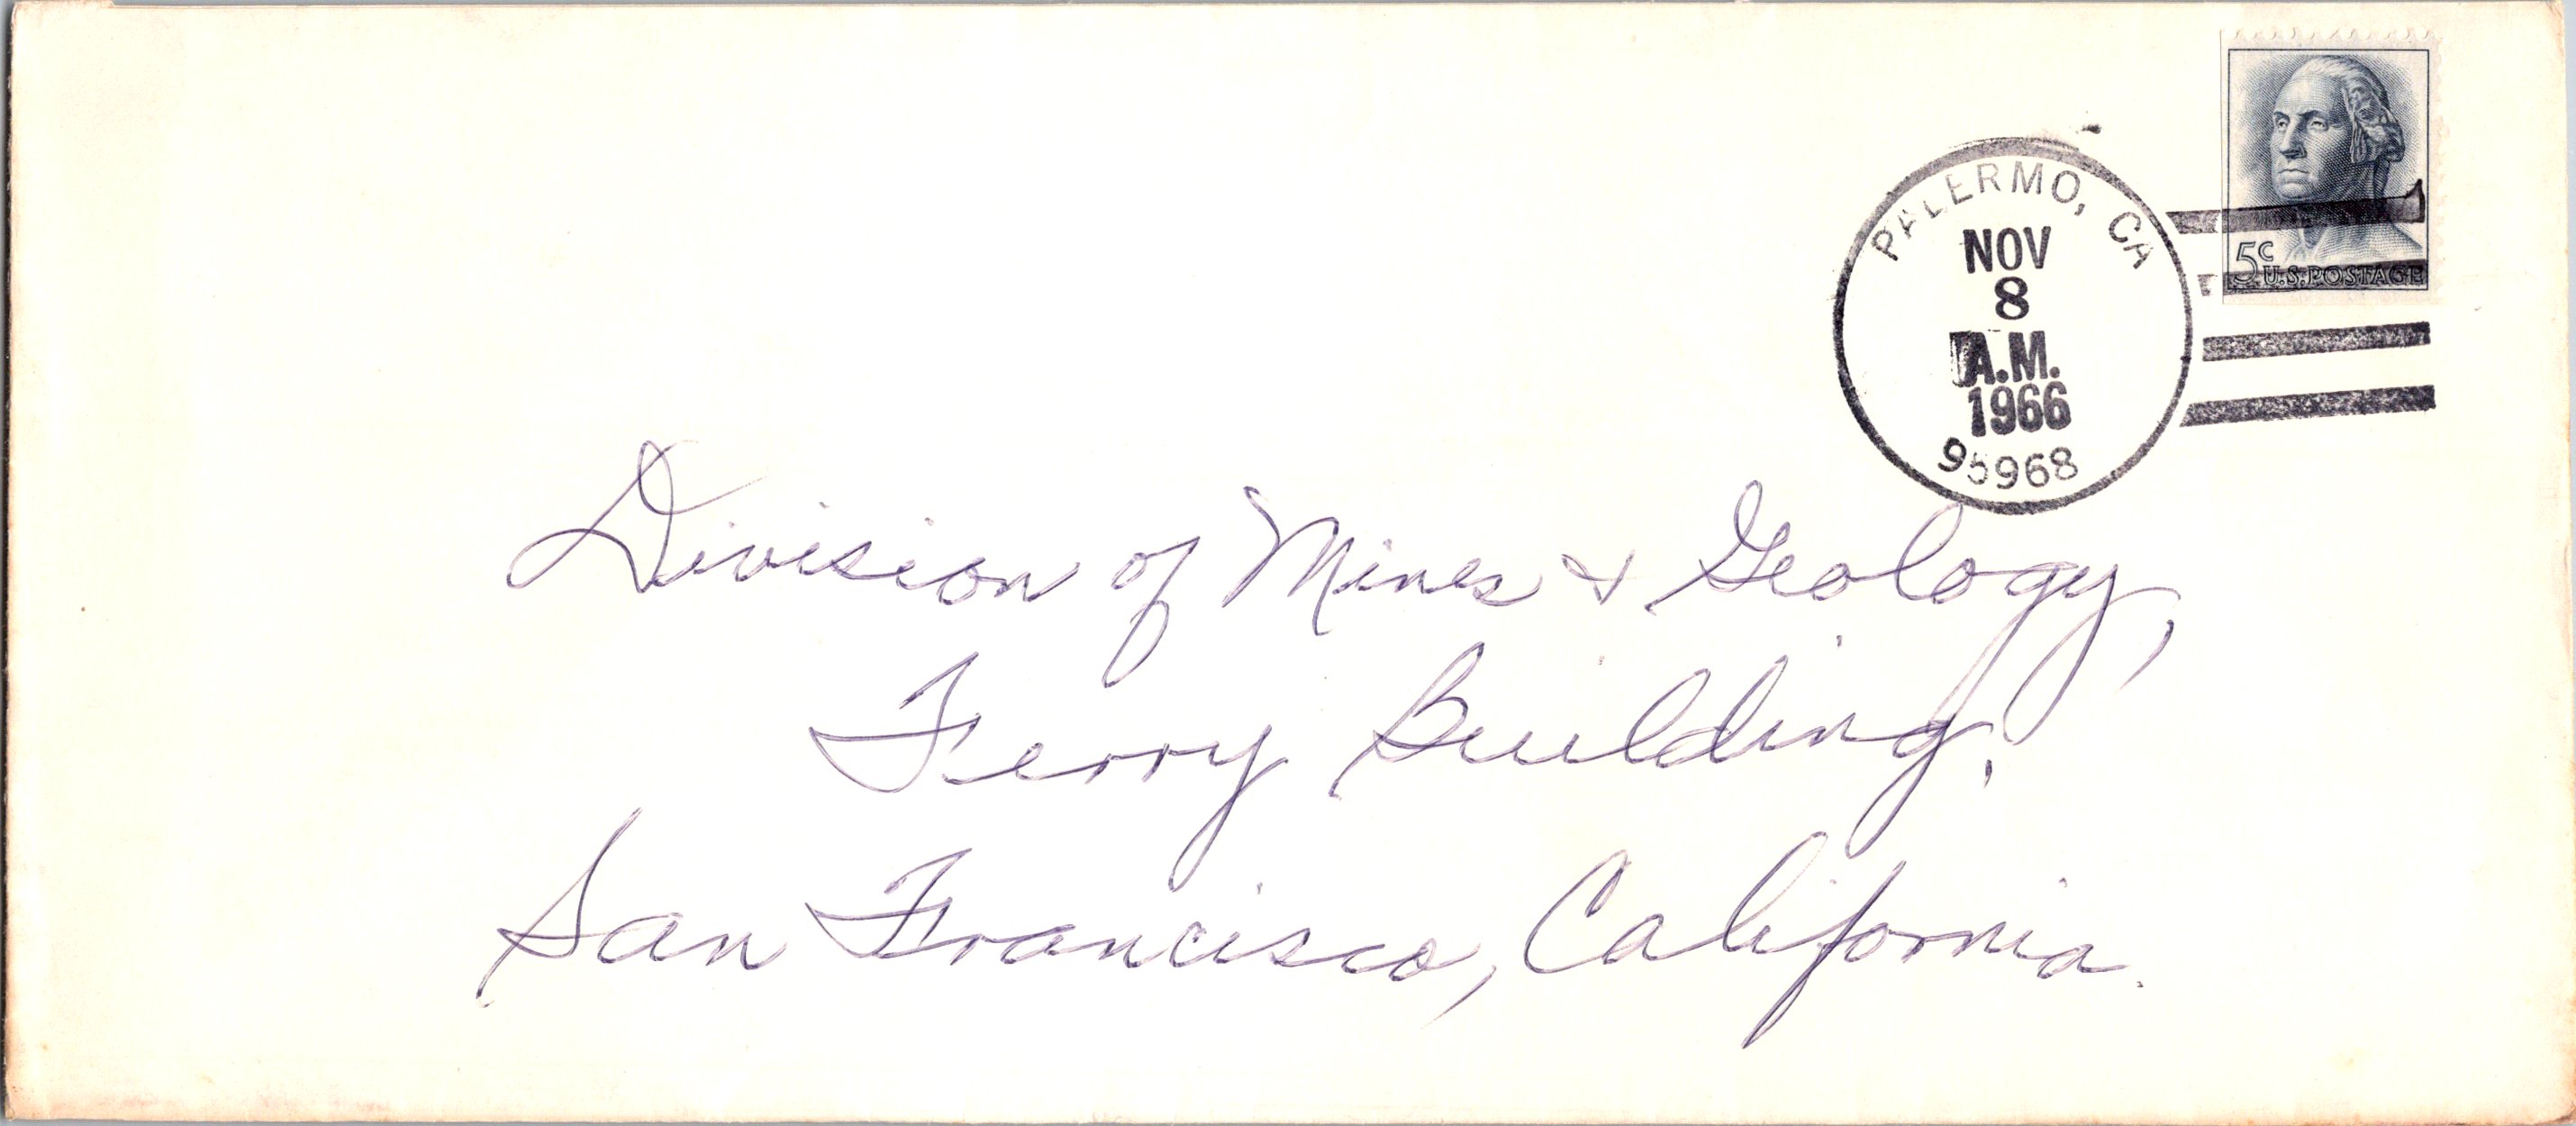 5¢
U.S. POSTAGE
PALERMO, CA
NOV
8
A.M.
1966
95968
Division of Mines & Geology,
Ferry Building,
San Francisco, California.